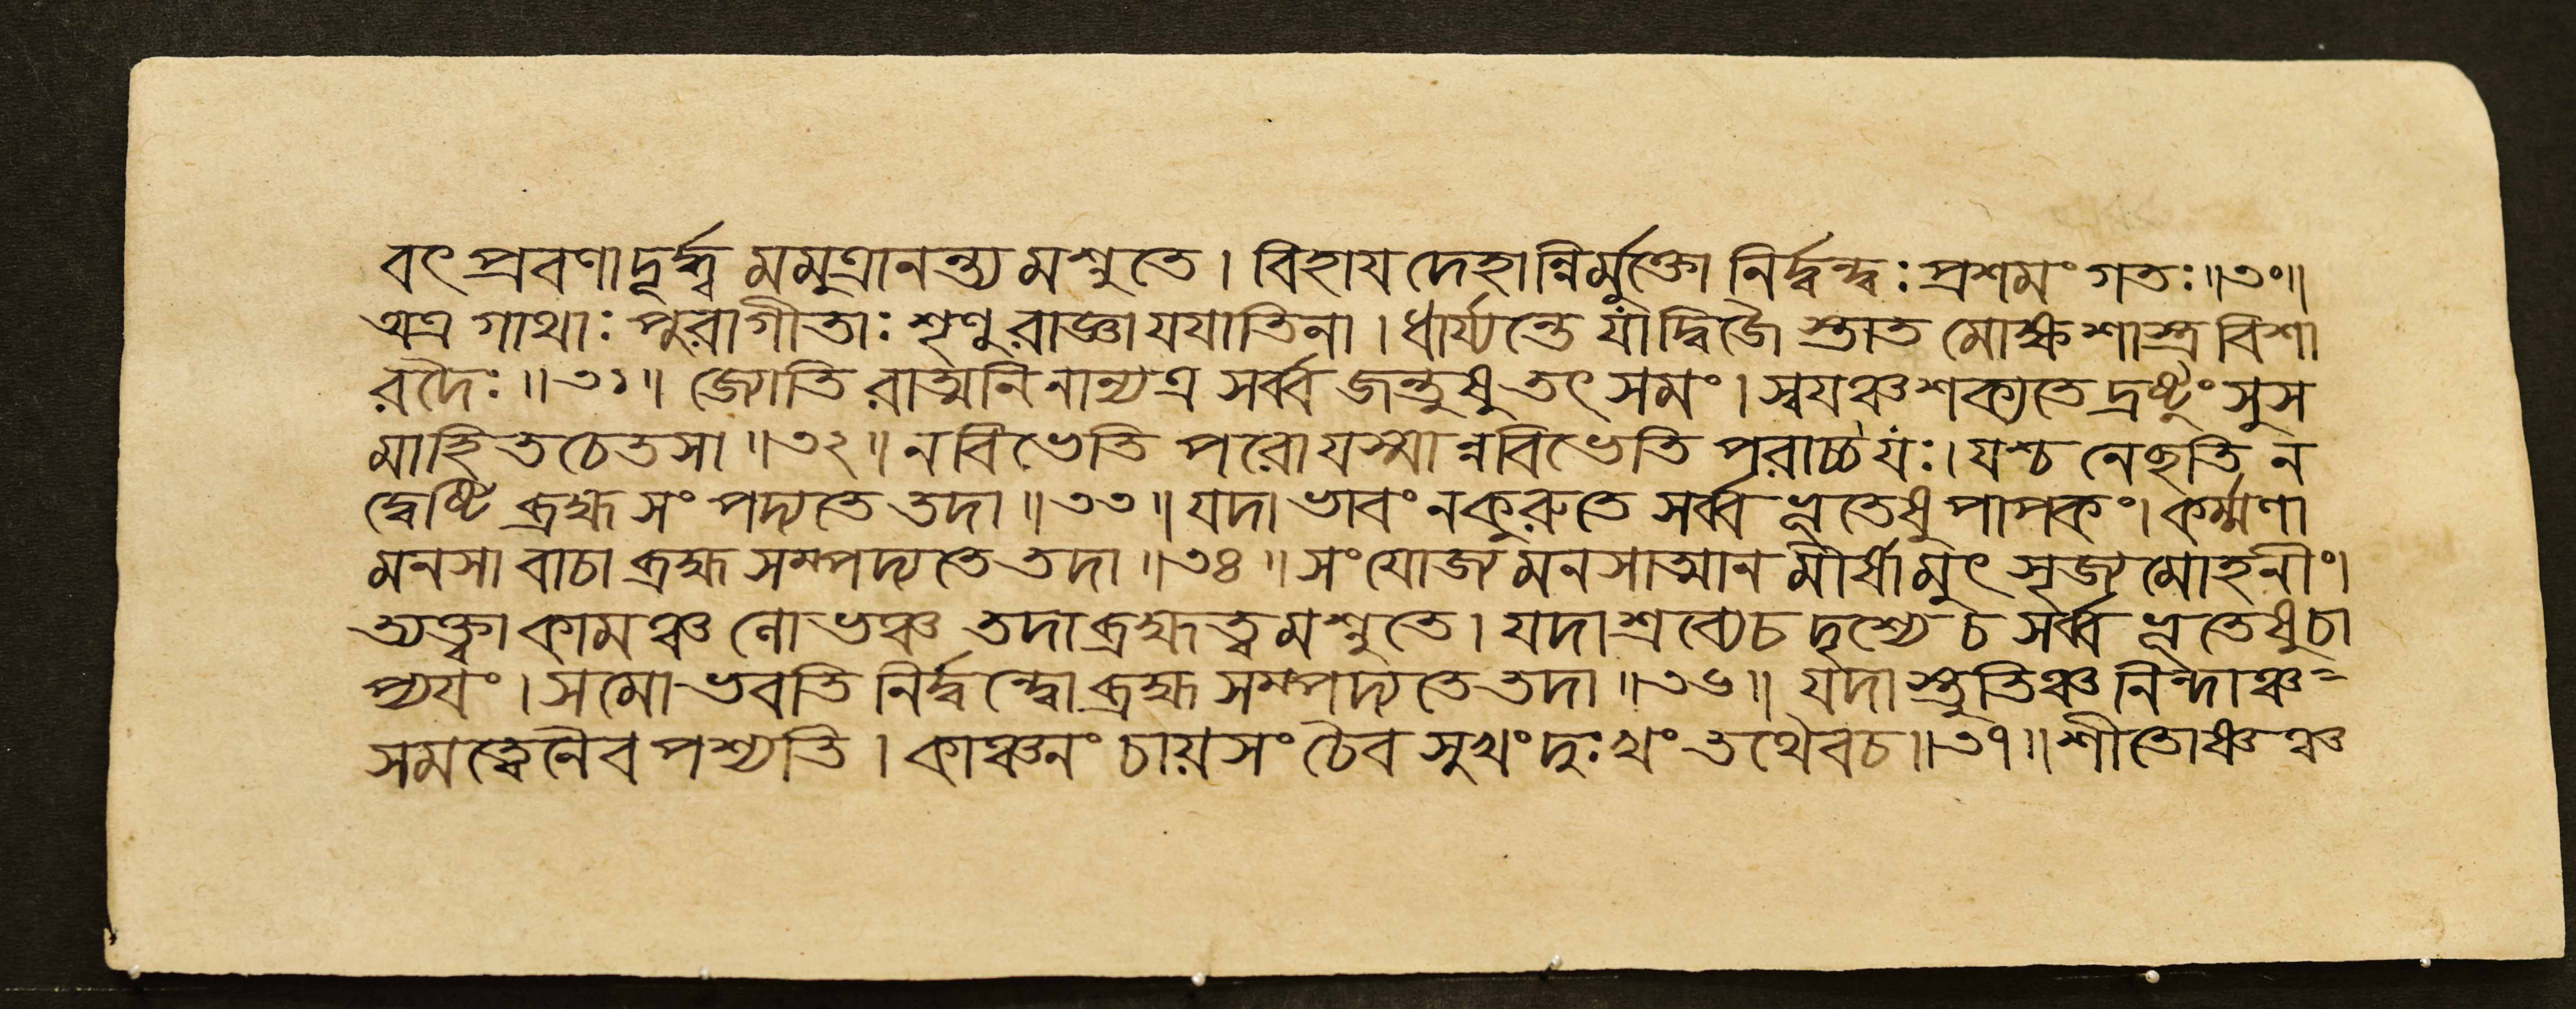 বৎ প্রবণাদূর্দ্ধ্ব মমুত্রানন্ত্য মশ্নুতে। বিহায দেহান্নির্মুক্তো নির্দ্বন্দ্বঃ প্রশমং গতঃ॥৩০॥
অত্র গাথাঃ পুরাগীতাঃ শৃণু রাজ্ঞা যযাতিনা। ধার্য্যন্তে যাদ্বিজৈ স্তাত মোক্ষ শাস্ত্র বিশা
রদৈঃ॥৩১॥ জ্যোতি রাত্মনি নান্যত্র সর্ব্ব জন্তুষু তৎ সমং। স্বযঞ্চ শক্যতে দ্রষ্টুং সুস
মাহিত চেতসা॥৩২॥ ন বিভেতি পরো যস্মান্ন বিভেতি পরাচ্চযঃ। যশ্চ নেছতি ন
দ্বেষ্টি ব্রহ্ম সং পদ্যতে তদা॥৩৩॥ যদা ভাবং ন কুরুতে সর্ব্ব ভূতেষু পাপকং। কর্ম্মণা
মনসা বাচা ব্রহ্ম সম্পদ্যতে তদা॥৩৪॥ সংযোজ্য মনসাত্মান মীর্ষামুৎ সৃজ্য মোহনীং।
ত্যক্ত্বা কামঞ্চ লোভঞ্চ তদা ব্রহ্মত্ব মশ্নুতে। যদা শ্রব্যেচ দৃশ্যে চ সর্ব্ব ভূতেষু চা
প্যযং। সমো ভবতি নির্দ্বন্দ্বো ব্রহ্ম সম্পদ্যতে তদা॥৩৬॥ যদা স্তুতিঞ্চ নিন্দাঞ্চ
সমত্বেনৈব পশ্যতি। কাঞ্চনং চায়সং চৈব সুখং দুঃখং তথৈবচ॥৩৭॥ শীতোষ্ণঞ্চ